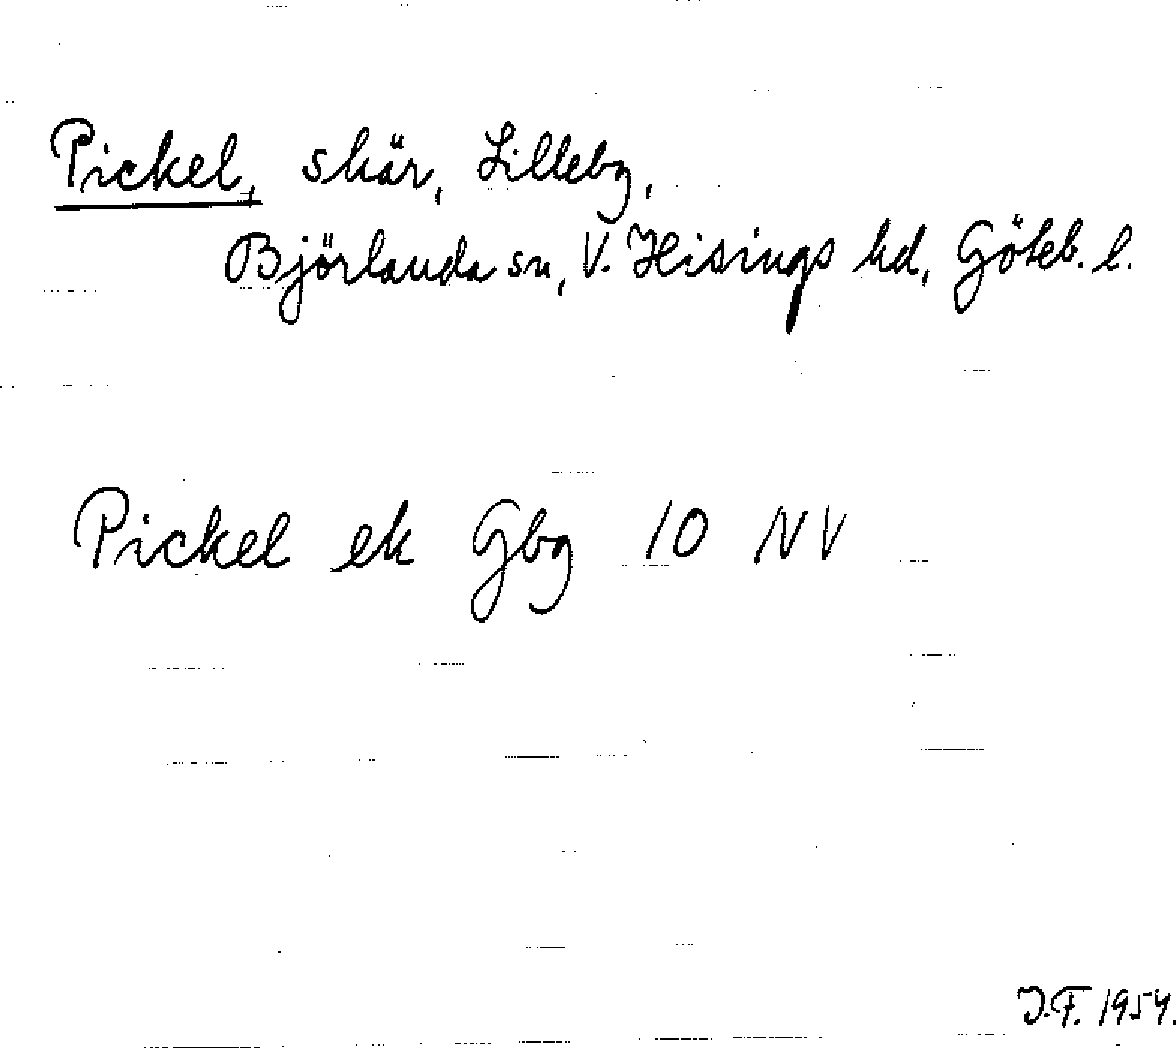 Pickel, skär, Lilleby,
Björlanda sn, V. Hisings hd, Göteb. l.
Pickel ek Gbg 10 NV
J.F. 1954.